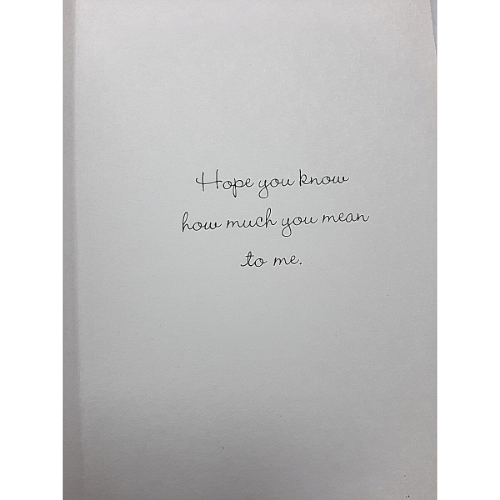 Hope you know
how much you mean
to me.